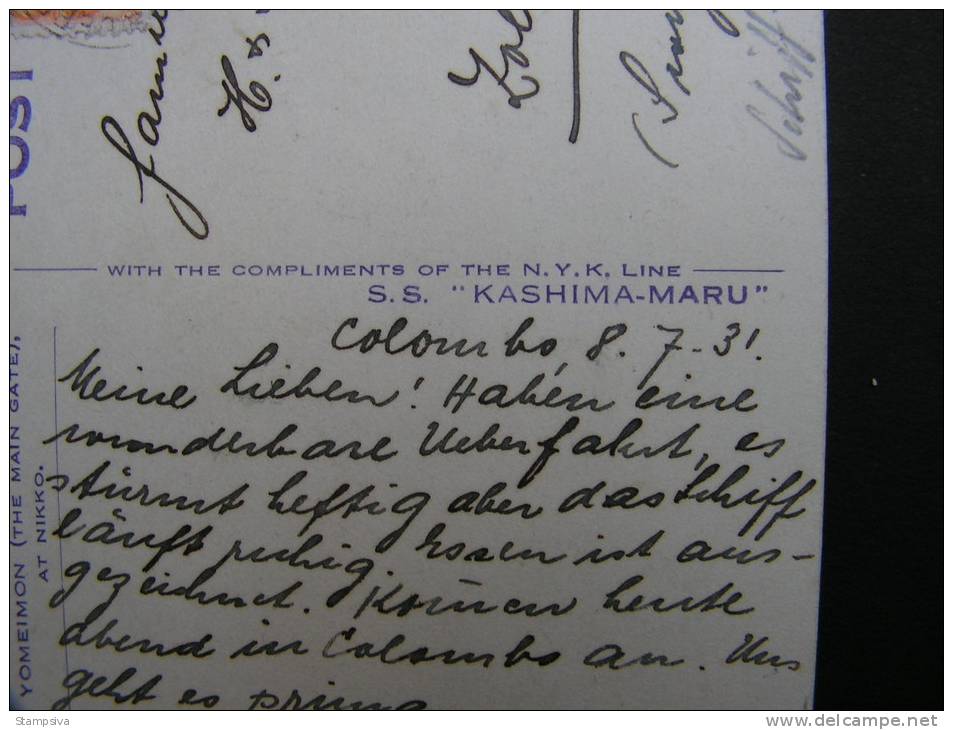 POST
Schiff
WITH THE COMPLIMENTS OF THE N.Y.K. LINE
S.S. "KASHIMA-MARU"
YOMEIMON (THE MAIN GATE),
AT NIKKO.
Colombo, 8. 7. 31.
Meine Lieben! Haben eine
wunderbare Ueberfahrt, es
stürmt heftig aber das Schiff
läuft ruhig. Essen ist aus-
gezeichnet. Kom̄en heute
abend in Colombo an. Uns
geht es prima
Stampsiva
www.delcampe.net